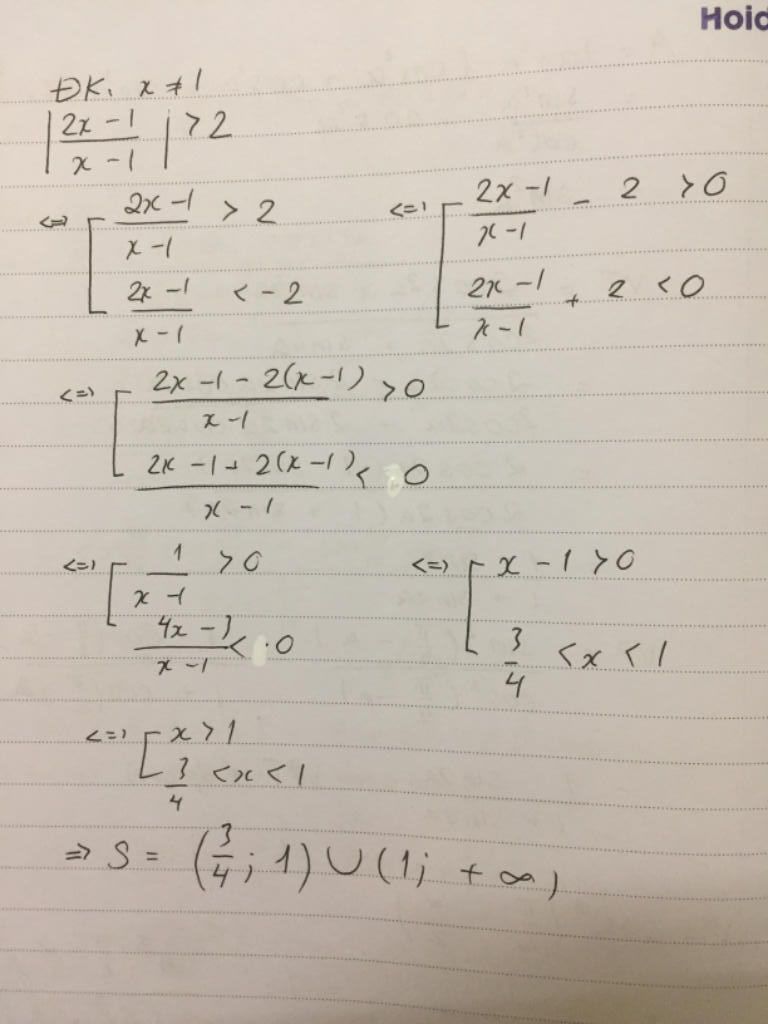 Hoid
ĐK: x ≠ 1
|(2x - 1)/(x - 1)| > 2
<=> [ (2x - 1)/(x - 1) > 2 <=> [ (2x - 1)/(x - 1) - 2 > 0
(2x - 1)/(x - 1) < -2 (2x - 1)/(x - 1) + 2 < 0
<=> [ (2x - 1 - 2(x - 1))/(x - 1) > 0
(2x - 1 + 2(x - 1))/(x - 1) < 0
<=> [ 1/(x - 1) > 0 <=> [ x - 1 > 0
(4x - 3)/(x - 1) < 0 3/4 < x < 1
<=> [ x > 1
3/4 < x < 1
=> S = (3/4; 1) ∪ (1; +∞)